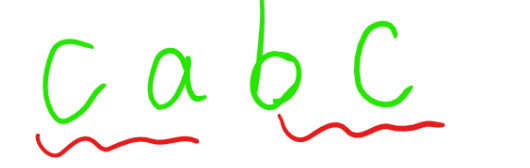 c a b c